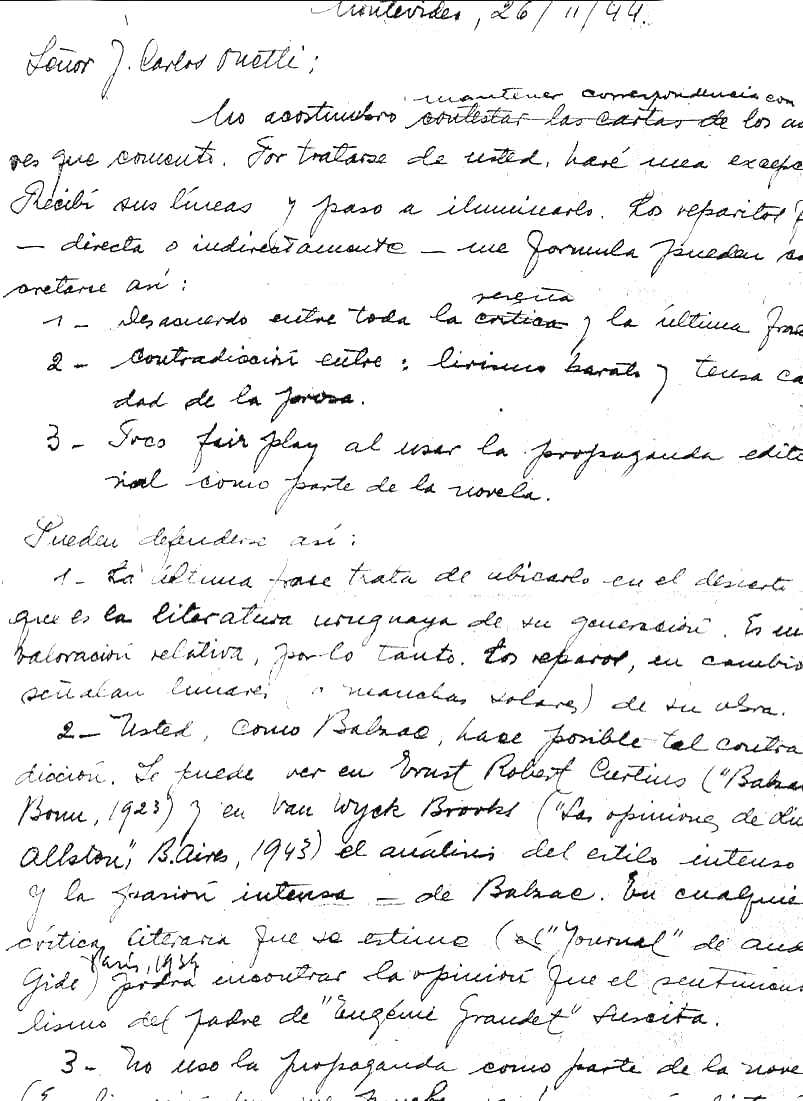 Montevideo, 26/11/44.
Señor J. Carlos Onetti;
mantener correspondencia con
No acostumbro contestar las cartas de los au
res que comento. Por tratarse de usted, haré una excepc
Recibí sus líneas y paso a iluminarlo. Los reparitos q
— directa o indirectamente — me formula pueden co
cretarse así:
reseña
1 - Desacuerdo entre toda la crítica y la última frase
2 - Contradicción entre: lirismo barato y tensa ca
dad de la prosa.
3 - Poco fair play al usar la propaganda edito
rial como parte de la novela.
Pueden defenderse así:
1 - La última frase trata de ubicarlo en el desierto
que es la literatura uruguaya de su generación. Es un
valoración relativa, por lo tanto. Los reparos, en cambio
señalan lunares (o manchas solares) de su obra.
2 - Usted, como Balzac, hace posible tal contra
dicción. Se puede ver en Ernst Robert Curtius ("Balzac
Bonn, 1923) y en Van Wyck Brooks ("Las opiniones de Oli
Allston", B. Aires, 1943) el análisis del estilo intenso
y la pasión intensa — de Balzac. En cualquie
crítica literaria que se estime (el "Journal" de And
París, 1939
Gide) podrá encontrar la opinión que el sentimenta
lismo del padre de "Eugénie Grandet" suscita.
3 - No uso la propaganda como parte de la nove